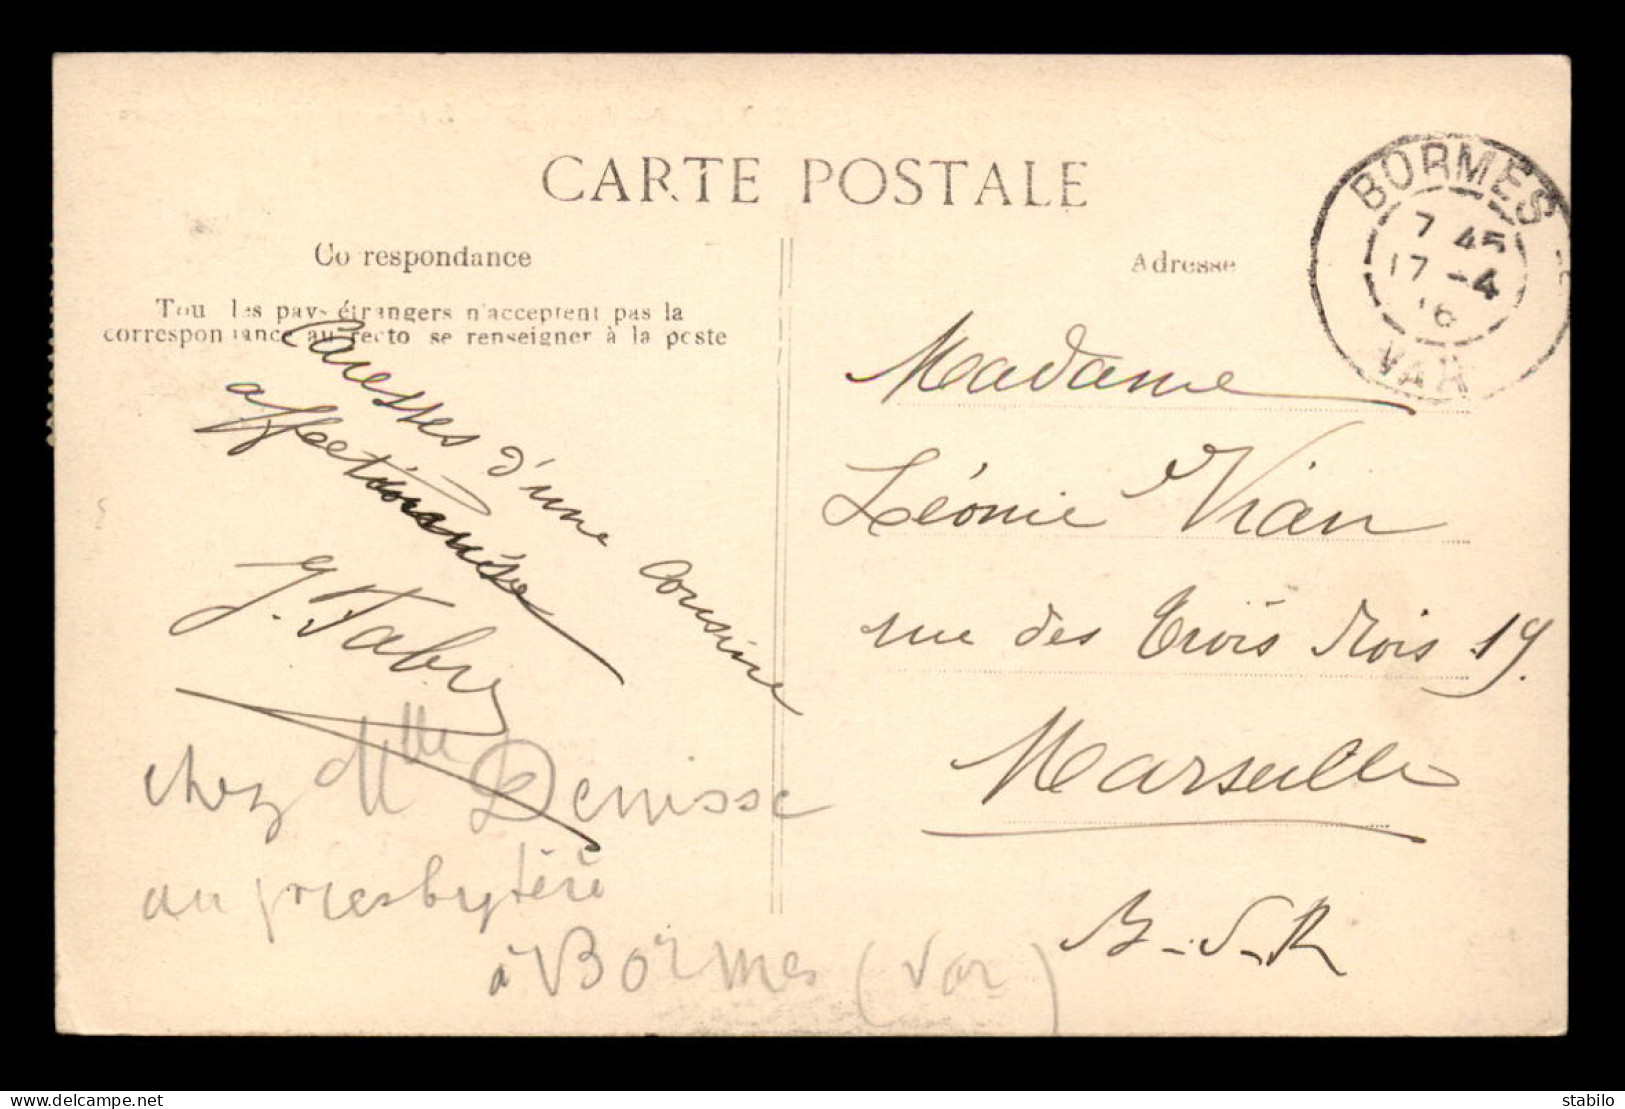 CARTE POSTALE
Correspondance
Tous les pays étrangers n'acceptent pas la
correspondance au recto se renseigner à la poste
Adresse
BORMES
7 45
17 -4
16
VAR
Caresses d'une cousine
affectionnée
J. Fabre
chez Mlle Denisse
au presbytère
à Bormes (Var)
Madame
Léonie Vian
rue des Trois Rois 19.
Marseille
B-d-R
delcampe.net
stabilo